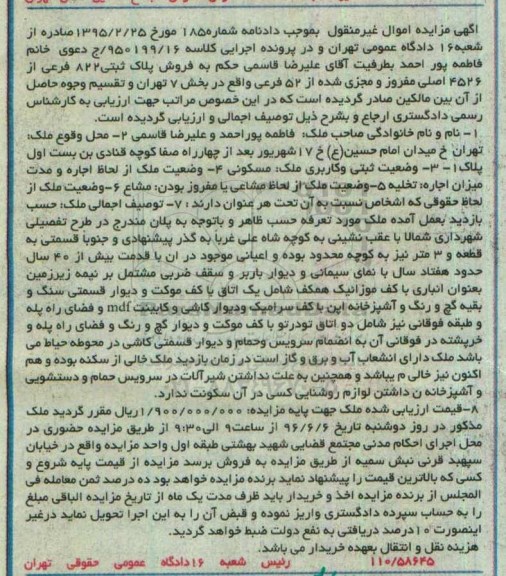 آگهی مزایده اموال غیرمنقول بموجب دادنامه شماره۱۸۵ مورخ ۱۳۹۵/۲/۲۵صادره از
شعبه۱۶ دادگاه عمومی تهران و در پرونده اجرایی کلاسه ۹۵۰۱۹۹/۱۶/ج دعوی خانم
فاطمه پور احمد بطرفیت آقای علیرضا قاسمی حکم به فروش پلاک ثبتی۸۲۲ فرعی از
۴۵۲۶ اصلی مفروز و مجزی شده از ۵۲ فرعی واقع در بخش ۷ تهران و تقسیم وجوه حاصل
از آن بین مالکین صادر گردیده است که در این خصوص مراتب جهت ارزیابی به کارشناس
رسمی دادگستری ارجاع و بشرح ذیل توصیف اجمالی و ارزیابی گردیده است.
۱- نام و نام خانوادگی صاحب ملک: فاطمه پوراحمد و علیرضا قاسمی ۲- محل وقوع ملک:
تهران خ میدان امام حسین(ع) خ ۱۷شهریور بعد از چهارراه صفا کوچه قنادی بن بست اول
پلاک۱- ۳- وضعیت ثبتی وکاربری ملک: مسکونی ۴- وضعیت ملک از لحاظ اجاره و مدت
میزان اجاره: تخلیه ۵-وضعیت ملک از لحاظ مشاعی یا مفروز بودن: مشاع ۶-وضعیت ملک از
لحاظ حقوقی که اشخاص نسبت به آن تحت هر عنوان دارند : ۷- توصیف اجمالی ملک: حسب
بازدید بعمل آمده ملک مورد تعرفه حسب ظاهر و باتوجه به پلان مندرج در طرح تفصیلی
شهرداری شمالا با عقب نشینی به کوچه شاه علی غربا به گذر پیشنهادی و جنوبا قسمتی به
قطعه و ۳ متر نیز به کوچه محدود بوده و اعیانی موجود در آن با قدمت بیش از ۴۰ سال
حدود هفتاد سال با نمای سیمانی و دیوار باربر و سقف ضربی مشتمل بر نیمه زیرزمین
بعنوان انباری با کف موزائیک همکف شامل یک اتاق با کف موکت و دیوار قسمتی سنگ و
بقیه گچ و رنگ و آشپزخانه اپن با کف سرامیک ودیوار کاشی و کابینت mdf و فضای راه پله
و طبقه فوقانی نیز شامل دو اتاق تودرتو با کف موکت و دیوار گچ و رنگ و فضای راه پله و
خرپشته در فوقانی آن به انضمام سرویس وحمام و دیوار قسمتی کاشی در محوطه حیاط می
باشد ملک دارای انشعاب آب و برق و گاز است در زمان بازدید ملک خالی از سکنه بوده و هم
اکنون نیز خالی م یباشد و همچنین به علت نداشتن شیرآلات در سرویس حمام و دستشویی
و آشپزخانه ن داشتن لوازم روشنایی کسی در آن سکونت ندارد.
۸-قیمت ارزیابی شده ملک جهت پایه مزایده: ۱/۹۰۰/۰۰۰/۰۰۰ریال مقرر گردید ملک
مذکور در روز دوشنبه تاریخ ۹۶/۶/۶ از ساعت۹ الی۹:۳۰ از طریق مزایده حضوری در
محل اجرای احکام مدنی مجتمع قضایی شهید بهشتی طبقه اول واحد مزایده واقع در خیابان
سپهبد قرنی نبش سمیه از طریق مزایده به فروش برسد مزایده از قیمت پایه شروع و
کسی که بالاترین قیمت را پیشنهاد نماید برنده مزایده خواهد بود ده درصد ثمن معامله فی
المجلس از برنده مزایده اخذ و خریدار باید ظرف مدت یک ماه از تاریخ مزایده الباقی مبلغ
را به حساب سپرده دادگستری واریز نموده و قبض آن را به این اجرا تحویل نماید درغیر
اینصورت ۱۰درصد دریافتی به نفع دولت ضبط خواهد گردید.
هزینه نقل و انتقال بعهده خریدار می باشد.
۱۱۰/۵۸۶۴۵ رئیس شعبه ۱۶دادگاه عمومی حقوقی تهران